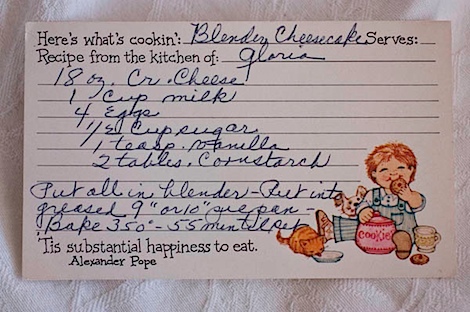 Here's what's cookin': Blender Cheesecake Serves:
Recipe from the kitchen of: Gloria
18 oz. Cr. Cheese
1 Cup milk
4 Eggs
1/2 Cup sugar
1 teasp. vanilla
2 tables. Cornstarch
Put all in blender - Put into
greased 9" or 10" pie pan -
Bake 350° - 55 min
'Tis substantial happiness to eat.
Alexander Pope
COOKIE